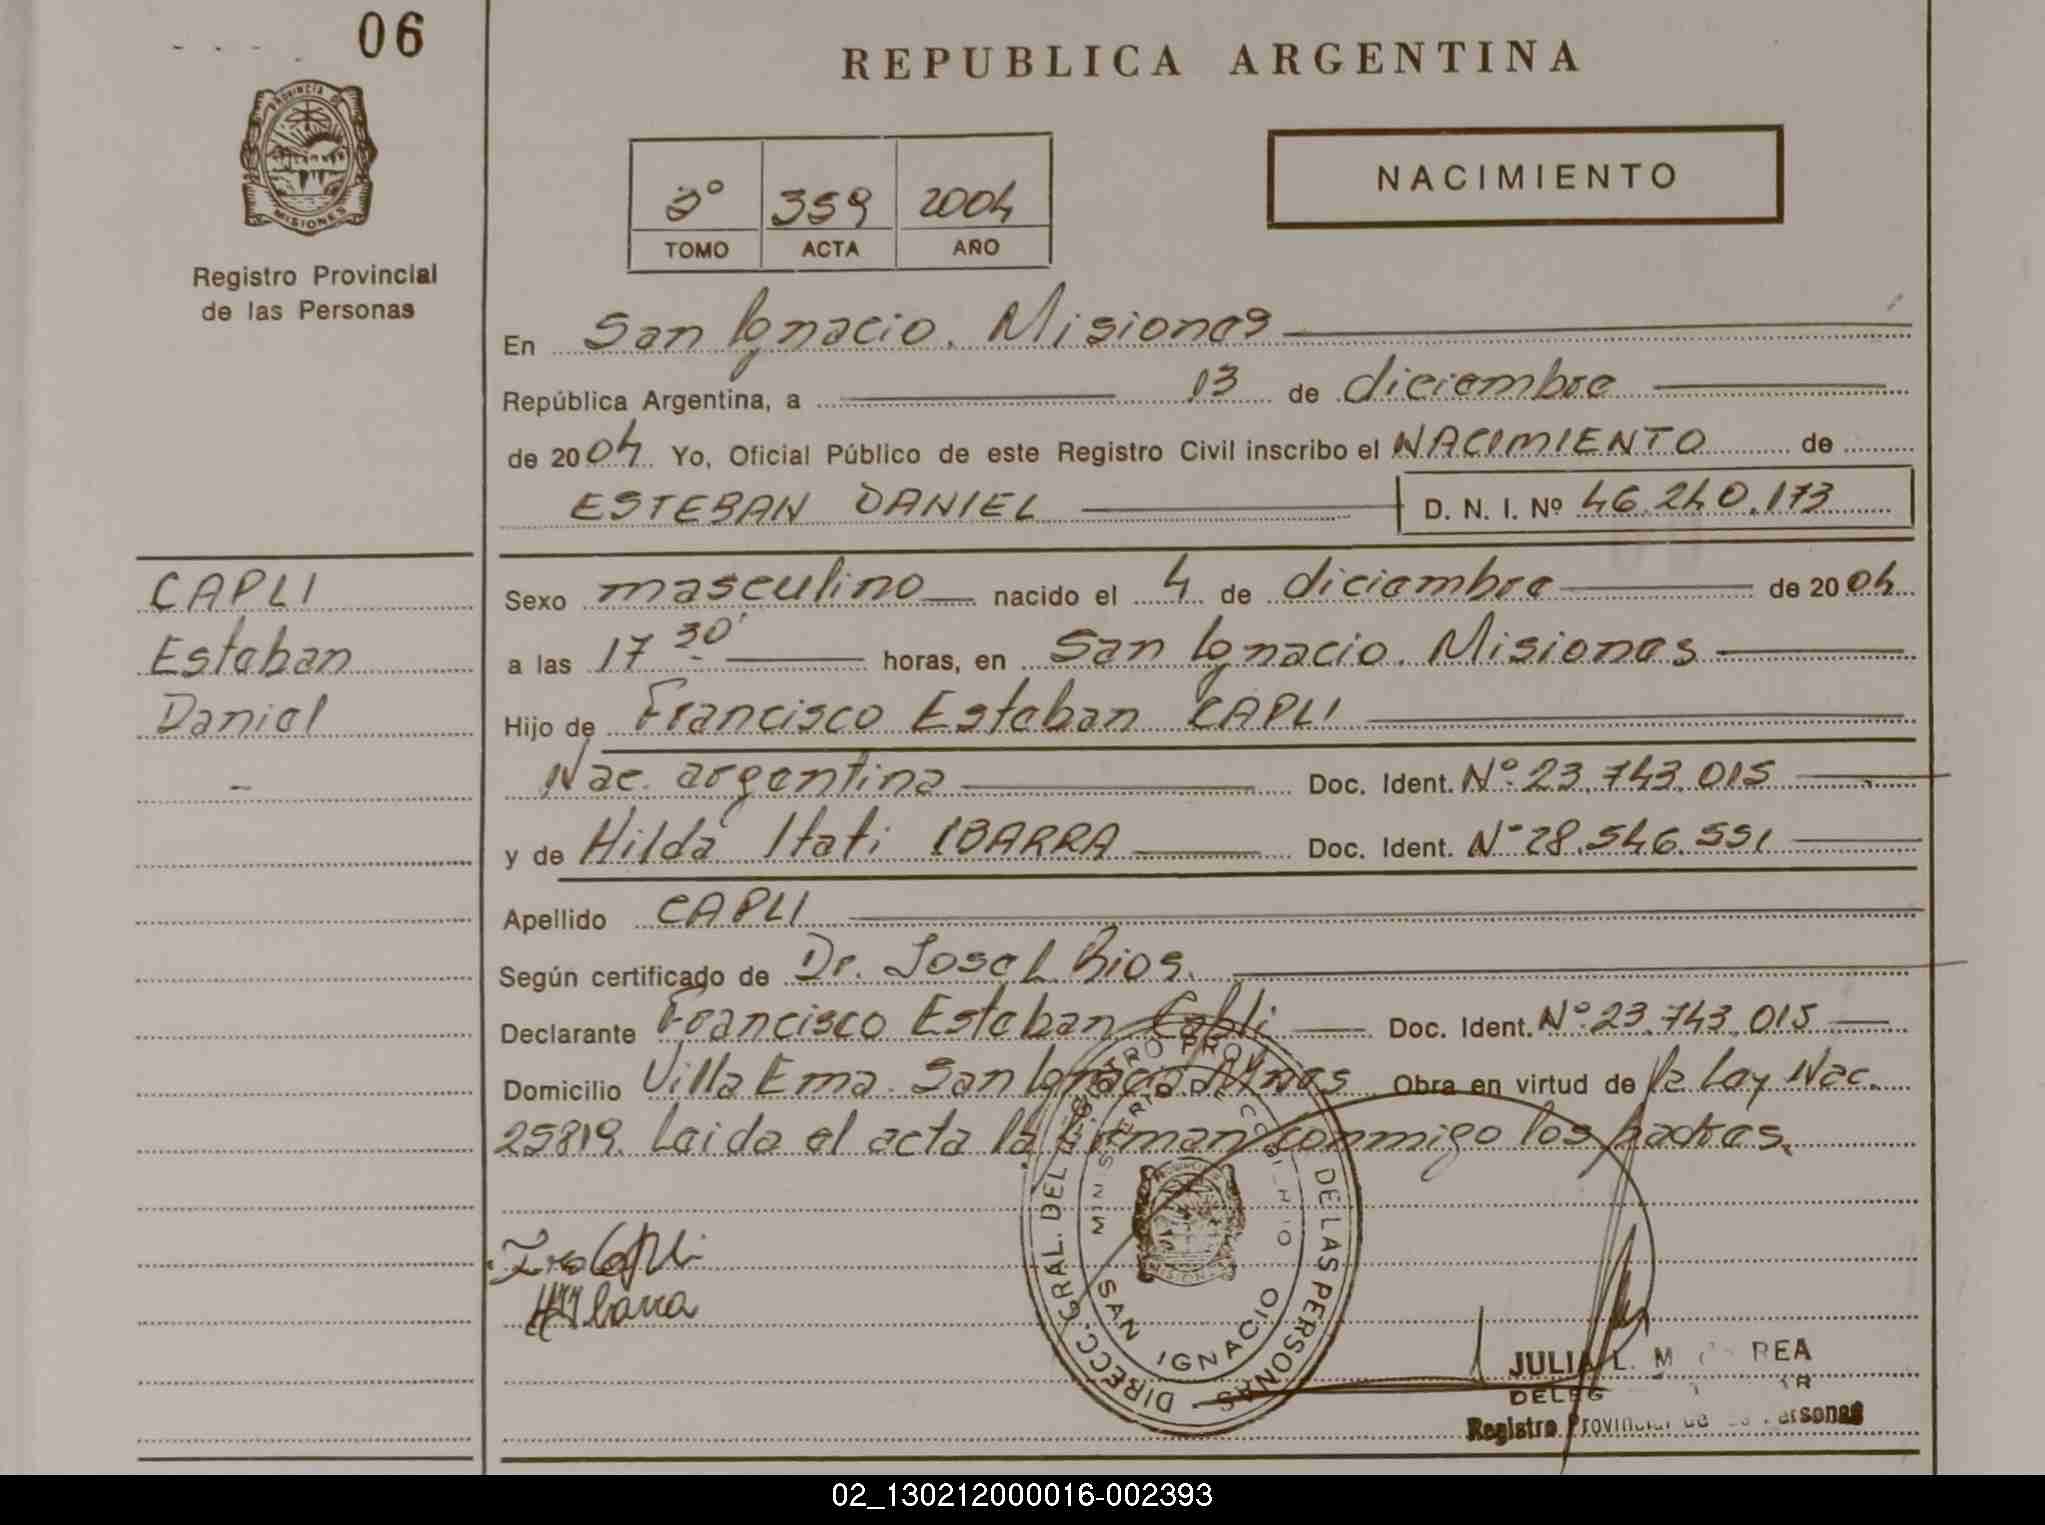 06
REPUBLICA ARGENTINA
PROVINCIA DE
MISIONES
Registro Provincial
de las Personas
NACIMIENTO
359 2004
TOMO ACTA AÑO
En San Ignacio. Misiones
República Argentina, a 13 de diciembre
de 2004 Yo, Oficial Público de este Registro Civil inscribo el NACIMIENTO de
ESTEBAN DANIEL D. N. I. Nº 46.240.173
CAPLI
Esteban
Daniel
Sexo masculino nacido el 4 de diciembre de 2004
a las 17 30' horas, en San Ignacio. Misiones
Hijo de Francisco Esteban CAPLI
Nac. argentina Doc. Ident. Nº 23.743.015
y de Hilda Itati IBARRA Doc. Ident. Nº 28.546.551
Apellido CAPLI
Según certificado de Dr. Jose L. Rios.
Declarante Francisco Esteban Capli Doc. Ident. Nº 23.743.015
Domicilio Villa Ema. San Ignacio. Mnes Obra en virtud de la Ley Nac.
25819. Leida el acta la firman conmigo los padres.
Capli
Ibarra
DIRECC. GRAL. DEL REGISTRO PROV. DE LAS PERSONAS
MINISTERIO DE
SAN IGNACIO
MISIONES
JULIA L. M
DELEG
Registro Provincial de las Personas
02_130212000016-002393